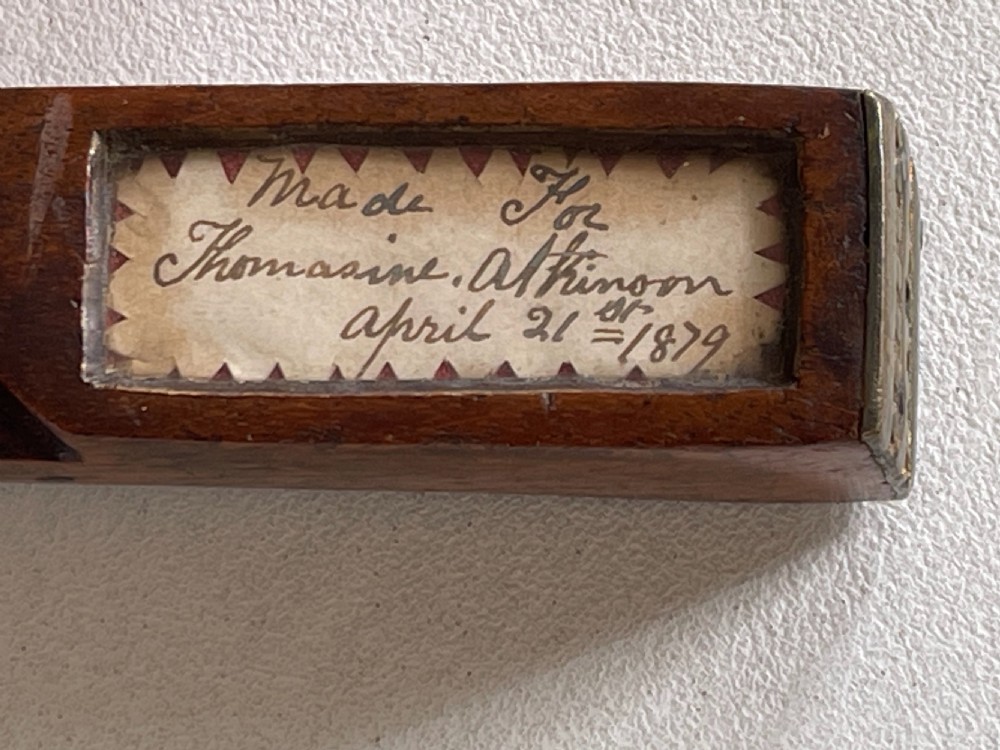 Made For
Thomasine. Atkinson
April 21st 1879